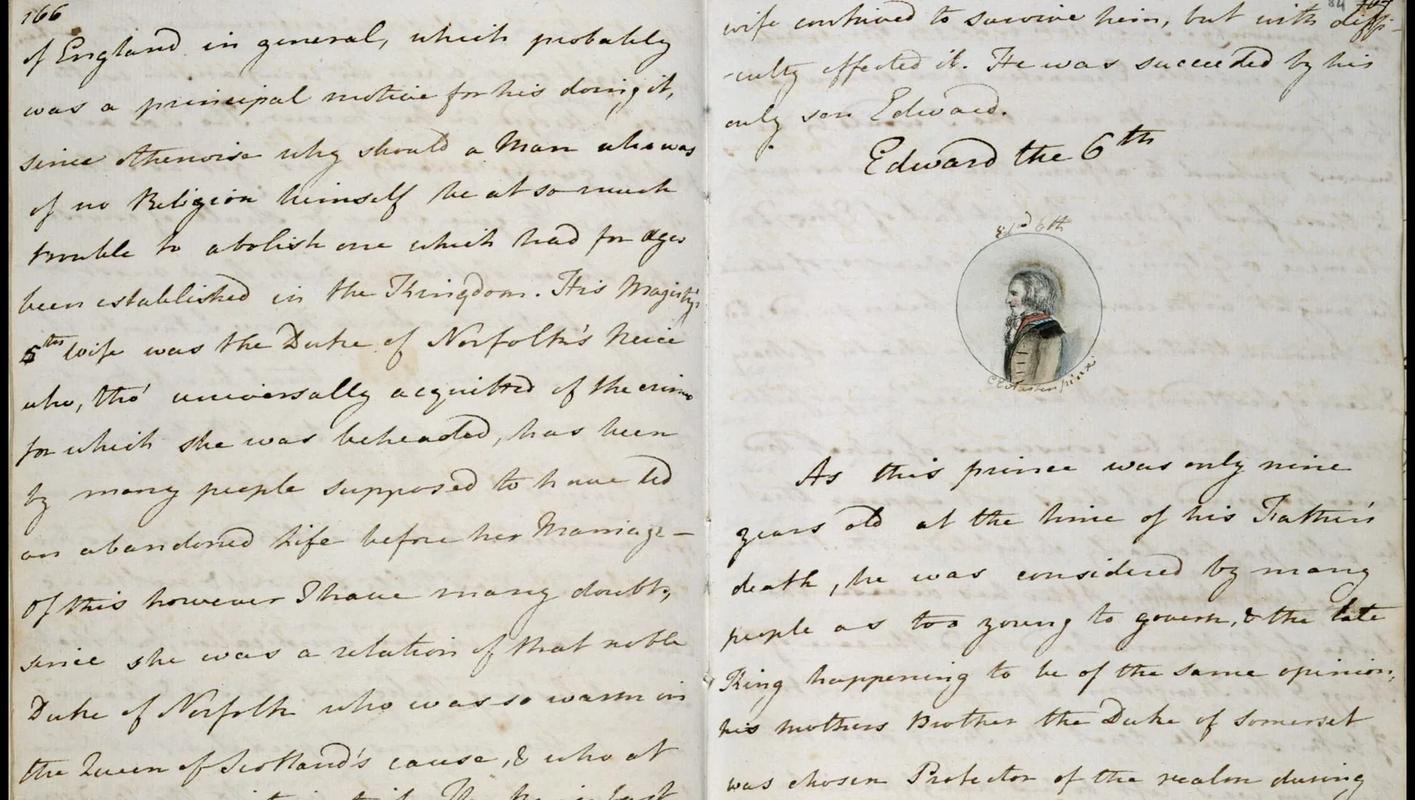 166
of England in general, which probably
was a principal motive for his doing it,
since otherwise why should a Man who was
of no Religion himself be at so much
trouble to abolish one which had for Ages
been established in the Kingdom. His Majesty's
5th wife was the Duke of Norfolk's Neice
who, tho' universally acquitted of the crimes
for which she was beheaded, has been
by many people supposed to have led
an abandoned Life before her Marriage—
Of this however I have many doubts,
since she was a relation of that noble
Duke of Norfolk who was so warm in
the Queen of Scotland's cause, & who at
84
wife contrived to survive him, but with diffi-
-culty effected it. He was succeeded by his
only son Edward.
Edward the 6th
Edwd 6th
C E Austen pinxit
As this prince was only nine
years old at the time of his Father's
death, he was considered by many
people as too young to govern, & the late
King happening to be of the same opinion,
his mothers Brother the Duke of Somerset
was chosen Protector of the realm during